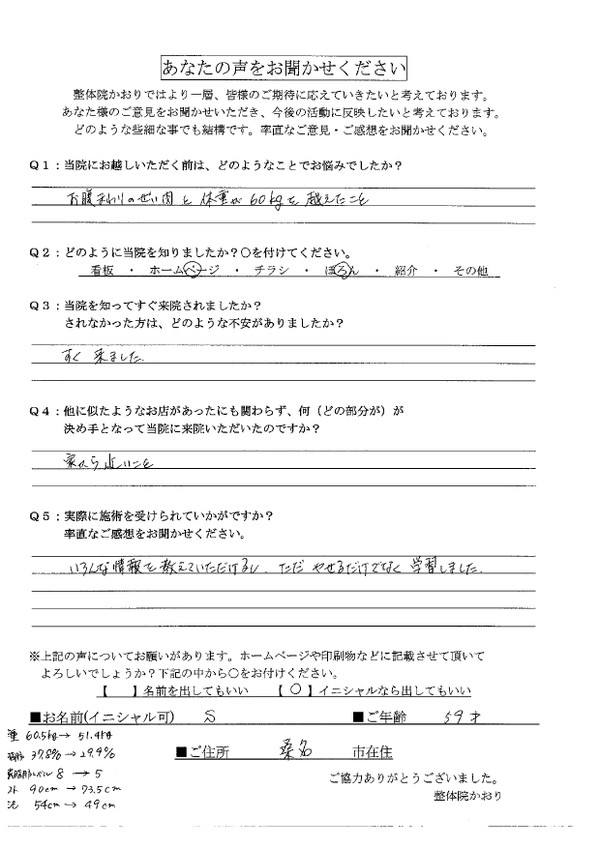 あなたの声をお聞かせください
整体院かおりではより一層、皆様のご期待に応えていきたいと考えております。
あなた様のご意見をお聞かせいただき、今後の活動に反映したいと考えております。
どのような些細な事でも結構です。率直なご意見・ご感想をお聞かせください。
Q1：当院にお越しいただく前は、どのようなことでお悩みでしたか？
お腹まわりのぜい肉と体重が60kgを越えたこと
Q2：どのように当院を知りましたか？○を付けてください。
看板 ・ ホームページ ・ チラシ ・ ぽろん ・ 紹介 ・ その他
Q3：当院を知ってすぐ来院されましたか？
されなかった方は、どのような不安がありましたか？
すぐ来ました。
Q4：他に似たようなお店があったにも関わらず、何（どの部分が）が
決め手となって当院に来院いただいたのですか？
家から近いこと
Q5：実際に施術を受けられていかがですか？
率直なご感想をお聞かせください。
いろんな情報を教えていただけるし、ただやせるだけでなく学習しました。
※上記の声についてお願いがあります。ホームページや印刷物などに記載させて頂いて
よろしいでしょうか？下記の中から○をお付けください。
【　】名前を出してもいい 【○】イニシャルなら出してもいい
■お名前(イニシャル可) S ■ご年齢 59才
重 60.5kg→51.4kg
■ご住所 桑名 市在住
37.8%→29.9%
8→5
ご協力ありがとうございました。
90cm→73.5cm
整体院かおり
54cm→49cm